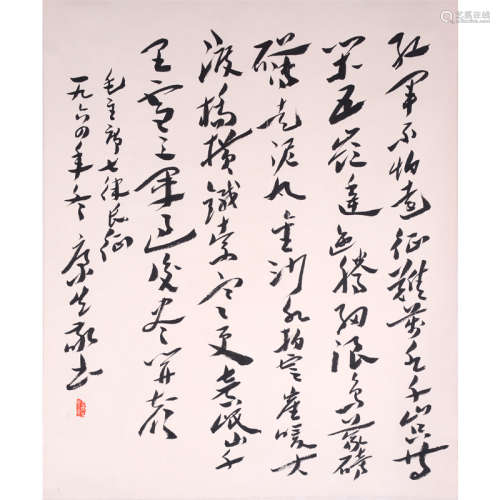 红军不怕远征難萬水千山只等
闲五岭逶迤腾细浪乌蒙磅
礴走泥丸金沙水拍雲崖暖大
渡橋横鐵索寒更喜岷山千
里雪三军过後尽開颜
毛主席七律長征
一九六四年冬 康生敬书